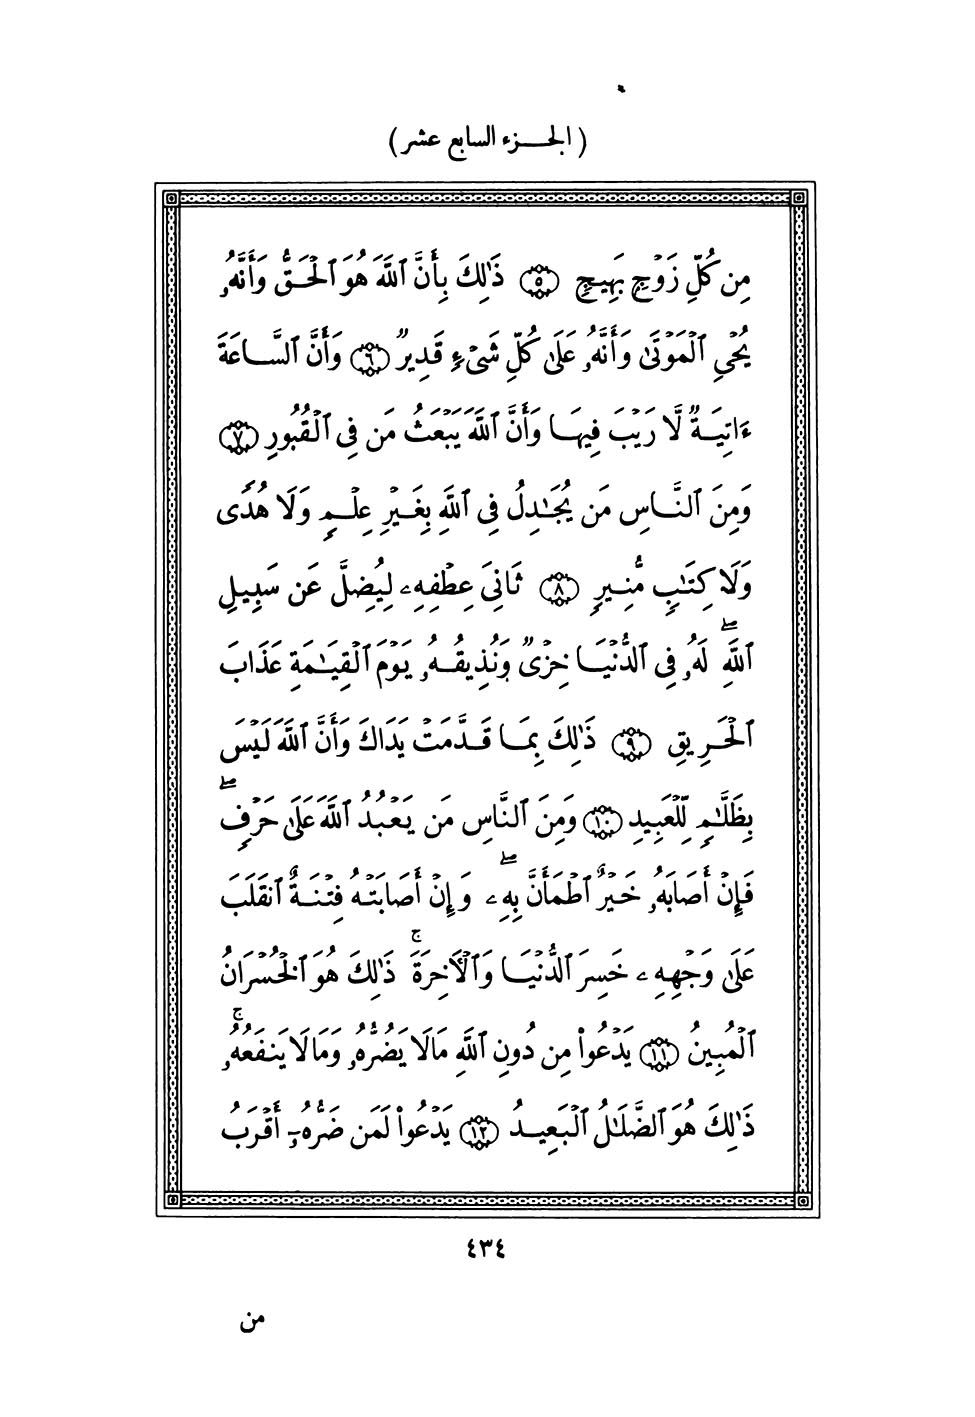 ( الجزء السابع عشر )
مِن كُلِّ زَوْجٍ بَهِيجٍ ۝٥ ذَٰلِكَ بِأَنَّ ٱللَّهَ هُوَ ٱلْحَقُّ وَأَنَّهُۥ
يُحْىِ ٱلْمَوْتَىٰ وَأَنَّهُۥ عَلَىٰ كُلِّ شَىْءٍ قَدِيرٌ ۝٦ وَأَنَّ ٱلسَّاعَةَ
ءَاتِيَةٌ لَّا رَيْبَ فِيهَا وَأَنَّ ٱللَّهَ يَبْعَثُ مَن فِى ٱلْقُبُورِ ۝٧
وَمِنَ ٱلنَّاسِ مَن يُجَـٰدِلُ فِى ٱللَّهِ بِغَيْرِ عِلْمٍ وَلَا هُدًى
وَلَا كِتَـٰبٍ مُّنِيرٍ ۝٨ ثَانِىَ عِطْفِهِۦ لِيُضِلَّ عَن سَبِيلِ
ٱللَّهِ ۖ لَهُۥ فِى ٱلدُّنْيَا خِزْىٌ وَنُذِيقُهُۥ يَوْمَ ٱلْقِيَـٰمَةِ عَذَابَ
ٱلْحَرِيقِ ۝٩ ذَٰلِكَ بِمَا قَدَّمَتْ يَدَاكَ وَأَنَّ ٱللَّهَ لَيْسَ
بِظَلَّـٰمٍ لِّلْعَبِيدِ ۝١٠ وَمِنَ ٱلنَّاسِ مَن يَعْبُدُ ٱللَّهَ عَلَىٰ حَرْفٍ ۖ
فَإِنْ أَصَابَهُۥ خَيْرٌ ٱطْمَأَنَّ بِهِۦ ۖ وَإِنْ أَصَابَتْهُ فِتْنَةٌ ٱنقَلَبَ
عَلَىٰ وَجْهِهِۦ خَسِرَ ٱلدُّنْيَا وَٱلْـَٔاخِرَةَ ۚ ذَٰلِكَ هُوَ ٱلْخُسْرَانُ
ٱلْمُبِينُ ۝١١ يَدْعُوا۟ مِن دُونِ ٱللَّهِ مَا لَا يَضُرُّهُۥ وَمَا لَا يَنفَعُهُۥ ۚ
ذَٰلِكَ هُوَ ٱلضَّلَـٰلُ ٱلْبَعِيدُ ۝١٢ يَدْعُوا۟ لَمَن ضَرُّهُۥٓ أَقْرَبُ
٤٣٤
من